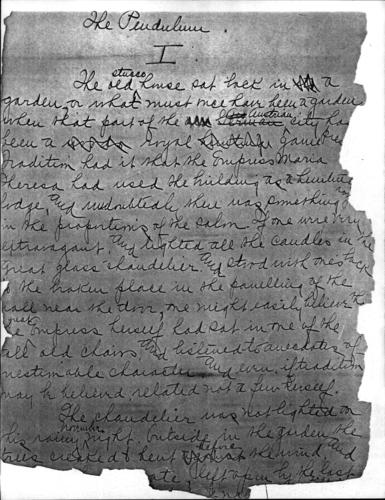 The Pendulum
I
stucco
The old house sat back in a
garden, or what must once have been a garden
Austrian
when that part of the city had
been a royal game
Tradition had it that the Empress Maria
Theresa had used the building as a hunting
lodge, and undoubtedly there was something
in the proportions of the salon. If one were very
extravagant, and lighted all the candles in the
great glass chandelier, and stood with one's back
to the broken place in the panelling of the
wall near the door, one might easily believe that
the Empress herself had sat in one of the
tall old chairs, and listened to anecdotes of
questionable character, and even, if tradition
may be believed, related not a few herself.
The chandelier was not lighted on
this rainy November night. Outside in the garden the
trees creaked & bent before the wind, and
gate, left open by the last